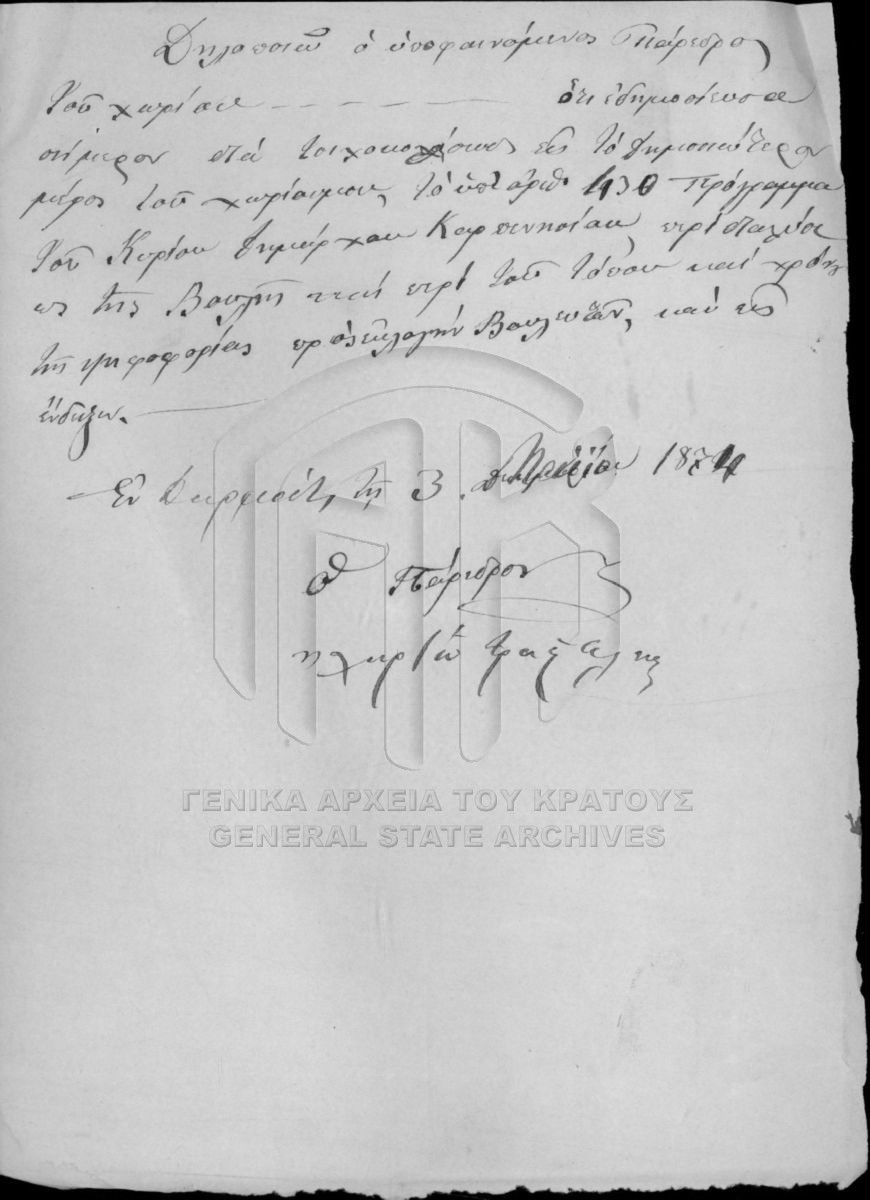 Δηλοποιῶ ὁ ὑποφαινόμενος Πάρεδρος
τοῦ χωρίου - - - - - ὅτι ἐδημοσίευσα
σήμερον διά τοιχοκολήσεως εἰς τό δημοσιώτερον
μέρος τοῦ χωρίου μου, τό ὑπ' ἀριθ. 430 πρόγραμμα
τοῦ Κυρίου Δημάρχου Καρπενησίου, περί διαλύσε
ως τῆς Βουλῆς καί περί τοῦ τόπου καί χρόνου
τῆς ψηφοφορίας πρός ἐκλογήν Βουλευτῶν, καί εἰς
ἔνδειξιν.
Ἐν τῇ 3 Μαΐου 1874
Ὁ Πάρεδρος
ΓΕΝΙΚΑ ΑΡΧΕΙΑ ΤΟΥ ΚΡΑΤΟΥΣ
GENERAL STATE ARCHIVES